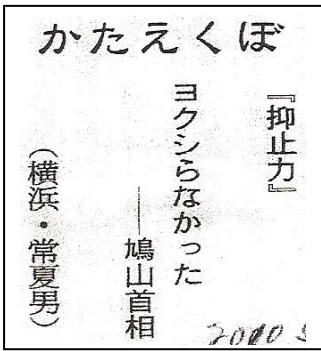 かたえくぼ
『抑止力』
ヨクシらなかった
――鳩山首相
（横浜・常夏男）
2010 5